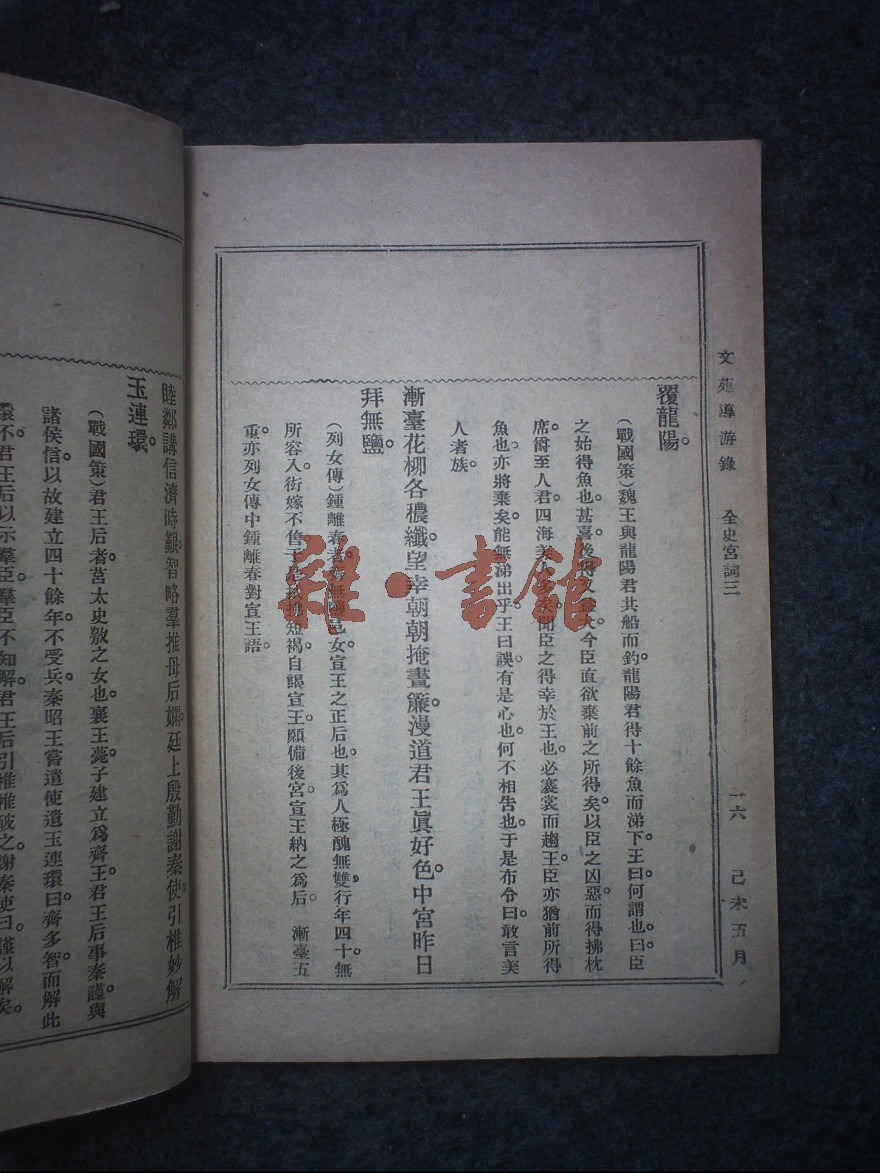 文苑導游錄　全史宮詞三　一六　己未五月
覆龍陽。
(戰國策)魏王與龍陽君共船而釣。龍陽君得十餘魚而涕下。王曰。何謂也。曰。臣
之始得魚也。甚喜。後得又益大。今臣直欲棄前之所得矣。以臣之凶惡。而得拂枕
席。爵至人君。四海美人多矣。聞臣之得幸於王也。必褰裳而趨王。臣亦猶前所得
魚也。亦將棄矣。能無涕出乎。王曰。誤有是心也。何不相告也。于是布令曰。敢言美
人者族。
漸臺花柳各穠纖。望幸朝朝掩畫簾。漫道君王眞好色。中宮昨日
拜無鹽。
(列女傳)鍾離春者。齊無鹽邑女。宣王之正后也。其爲人極醜無雙。行年四十。無
所容入。衒嫁不售。于是拂拭短褐。自謁宣王。願備後宮。宣王納之爲后。　漸臺五
重。亦列女傳中鍾離春對宣王語。
睦鄰講信濟時艱。智略羣推母后嫻。廷上殷勤謝秦使。引椎妙解
玉連環。
(戰國策)君王后者。莒太史敫之女也。襄王薨。子建立爲齊王。君王后事秦謹。與
諸侯信。以故建立四十餘年。不受兵。秦昭王嘗遣使遺玉連環。曰。齊多智。而解此
環不。君王后以示羣臣。羣臣不知解。君王后引椎椎破之。謝秦使曰。謹以解矣。
雜·書館